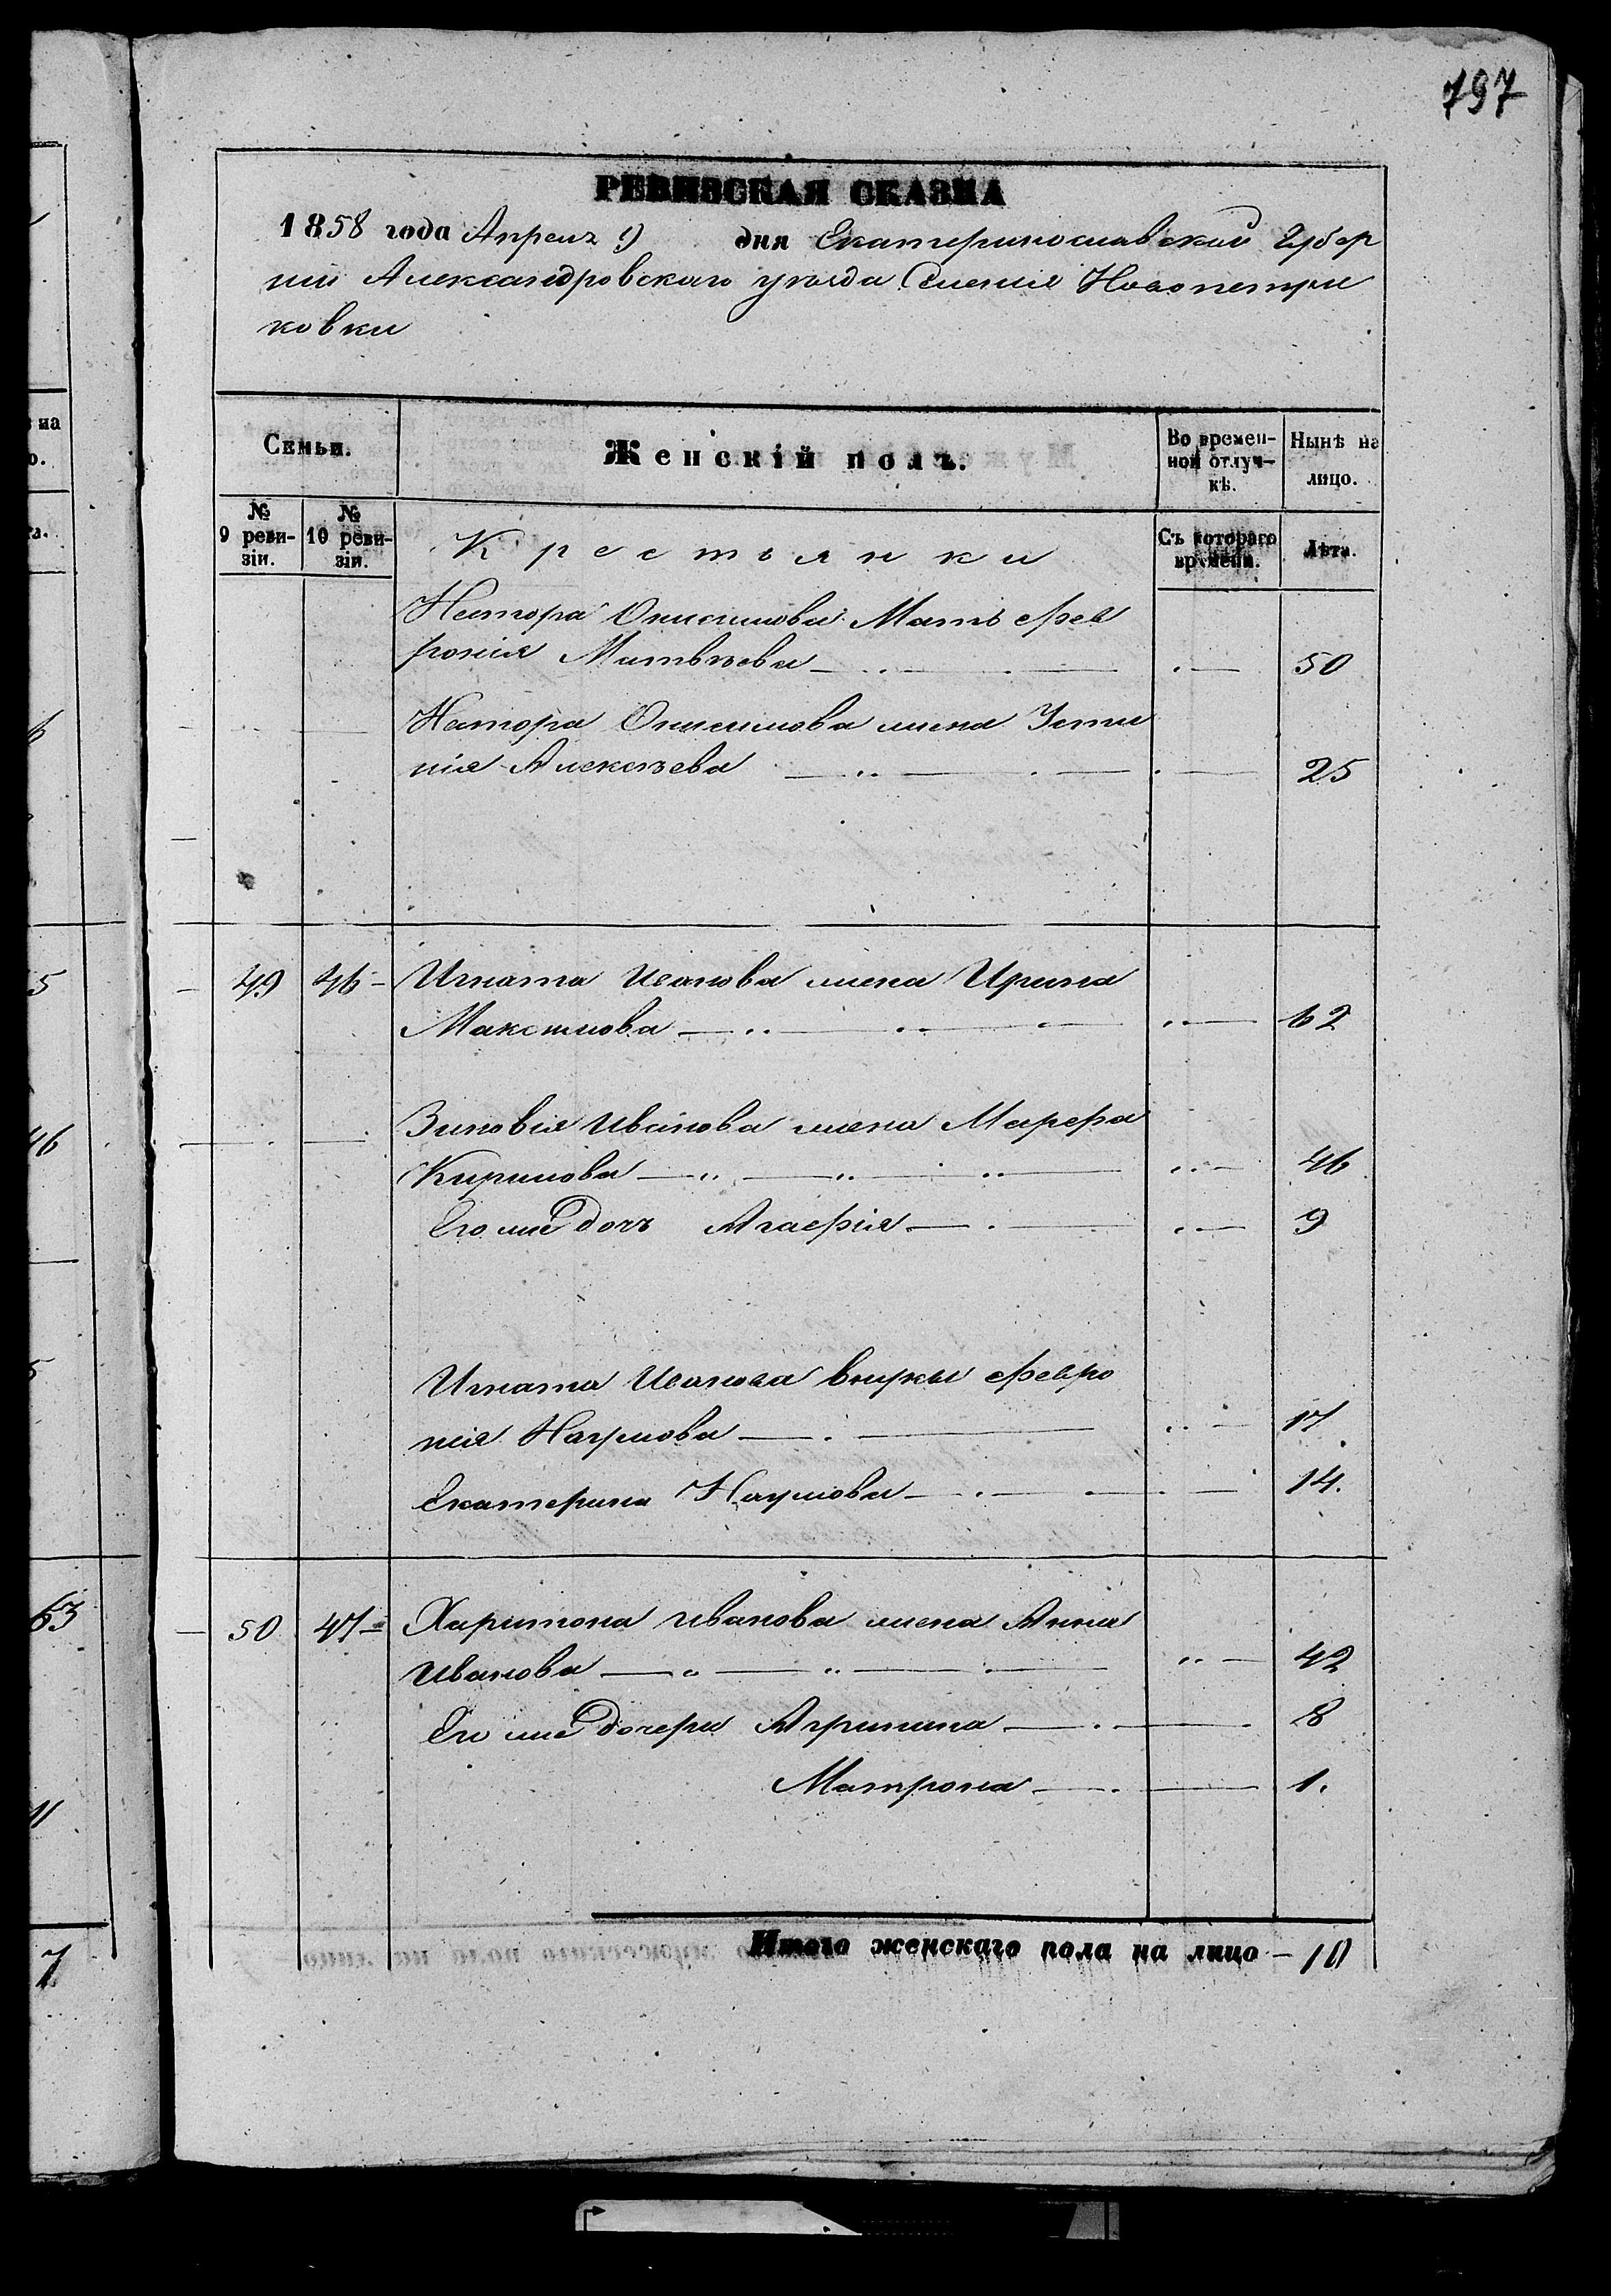 797
РЕВИЗСКАЯ СКАЗКА
1858 года Апреля 9 дня Екатеринославской Губер
нии Александровскаго уезда Селения Новопетри
ковки
Семьи.
Женскій полъ.
Во времен-
ной отлуч-
кѣ.
Нынѣ на
лицо.
№
9 реви-
зіи.
№
10 реви-
зіи.
Крестьянки
Съ котораго
времени.
Лѣта.
Нестора Онисимова Мать Фев
ронія Матвѣева 50
Нестора Онисимова жена Усти
нія Алексѣева 25
49 46 Игната Иванова жена Ирина
Максимова 62
Зиновія Иванова жена Марфа
Кирилова 46
Его же дочь Агафія 9
Игната Иванова внуки Февро
нія Наумова 17
Екатерина Наумова 14.
50 47 Харитона Иванова жена Анна
Иванова 42
Его же дочери Агрипина 8
Матрона 1.
Итого женскаго пола на лицо — 10